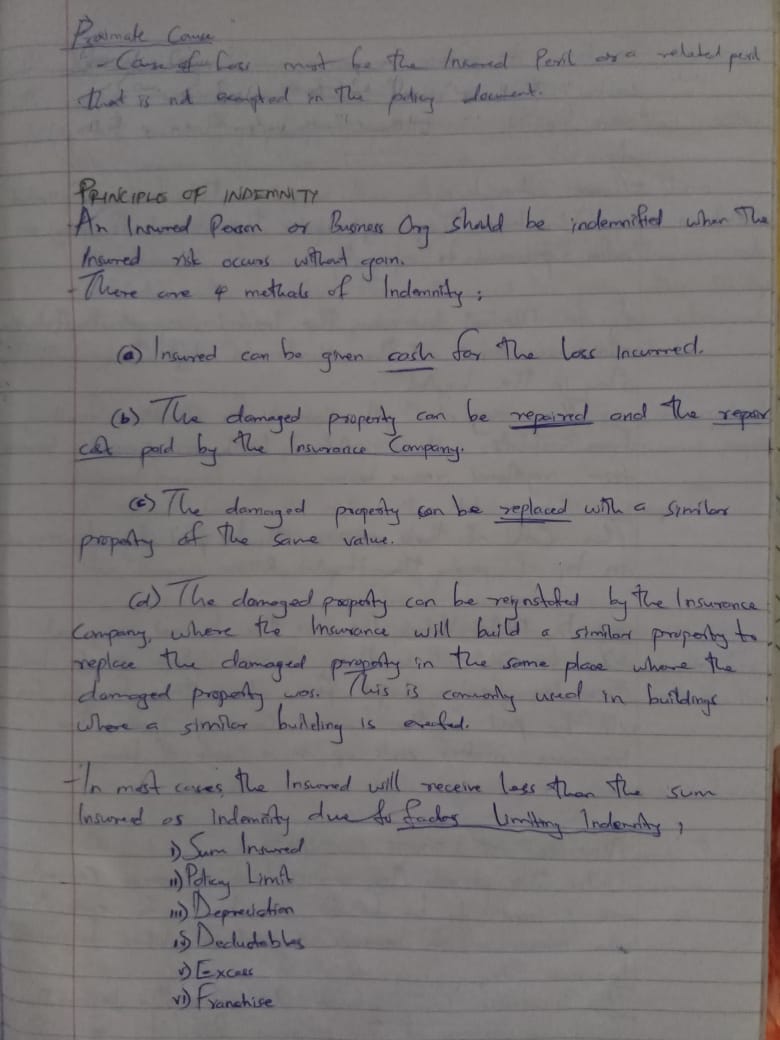 Proximate Cause
- Cause of Loss must be the Insured Peril or a related peril
that is not excepted in the policy document.
PRINCIPLE OF INDEMNITY
An Insured Person or Business Org should be indemnified when the
Insured risk occurs without gain.
- There are 4 methods of Indemnity;
(a) Insured can be given cash for the loss Incurred.
(b) The damaged property can be repaired and the repair
cost paid by the Insurance Company.
(c) The damaged property can be replaced with a similar
property of the same value.
(d) The damaged property can be reinstated by the Insurance
Company, where the Insurance will build a similar property to
replace the damaged property in the same place where the
damaged property was. This is commonly used in buildings
where a similar building is erected.
- In most cases, the Insured will receive less than the sum
Insured as Indemnity due to factors limiting Indemnity;
i) Sum Insured
ii) Policy Limit
iii) Depreciation
iv) Deductables
v) Excess
vi) Franchise